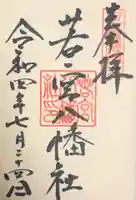 奉拝
若宮八幡社
令和四年七月二十四日